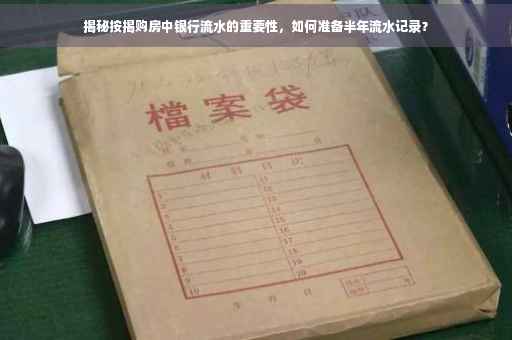 揭秘按揭购房中银行流水的重要性，如何准备半年流水记录？
檔案袋
材料目次
1 11
2 12
3 13
4 14
5 15
6 16
7 17
8 18
9 19
10 20
年 月 日